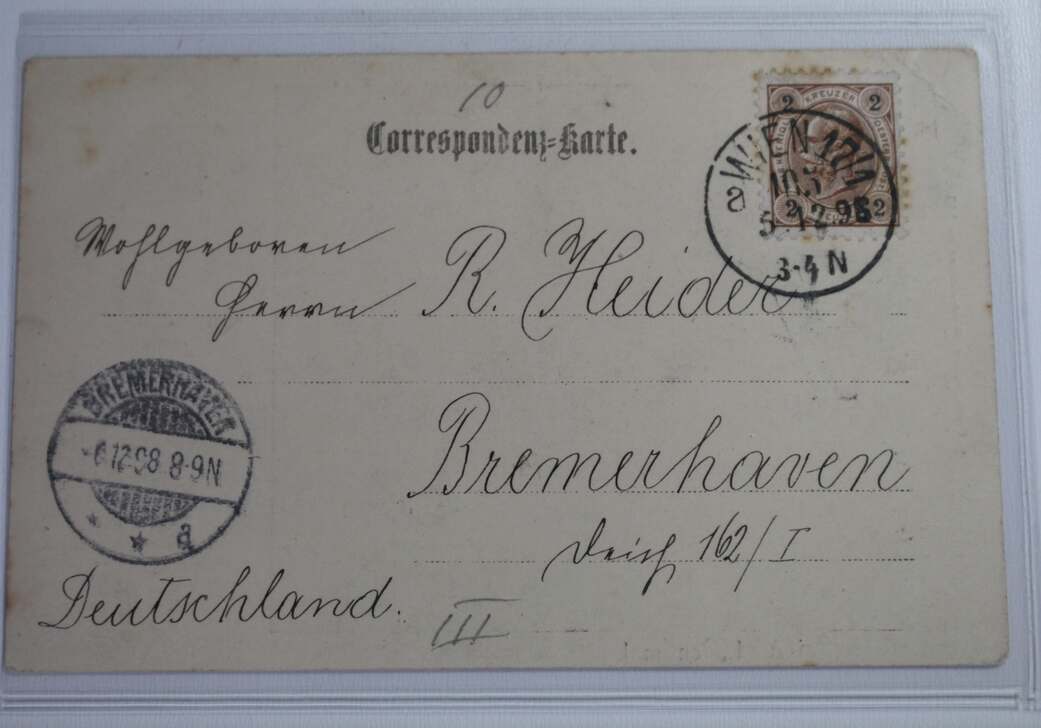 10
Correspondenz-Karte.
2 KREUZER 2
2 2
WIEN 17/1
103
5.12.98
3-4 N
a
Wohlgeboren
Herrn R. Heider
BREMERHAVEN
-6.12.98 8-9N
* * a
Bremerhaven
Deich 162/I
Deutschland.
III